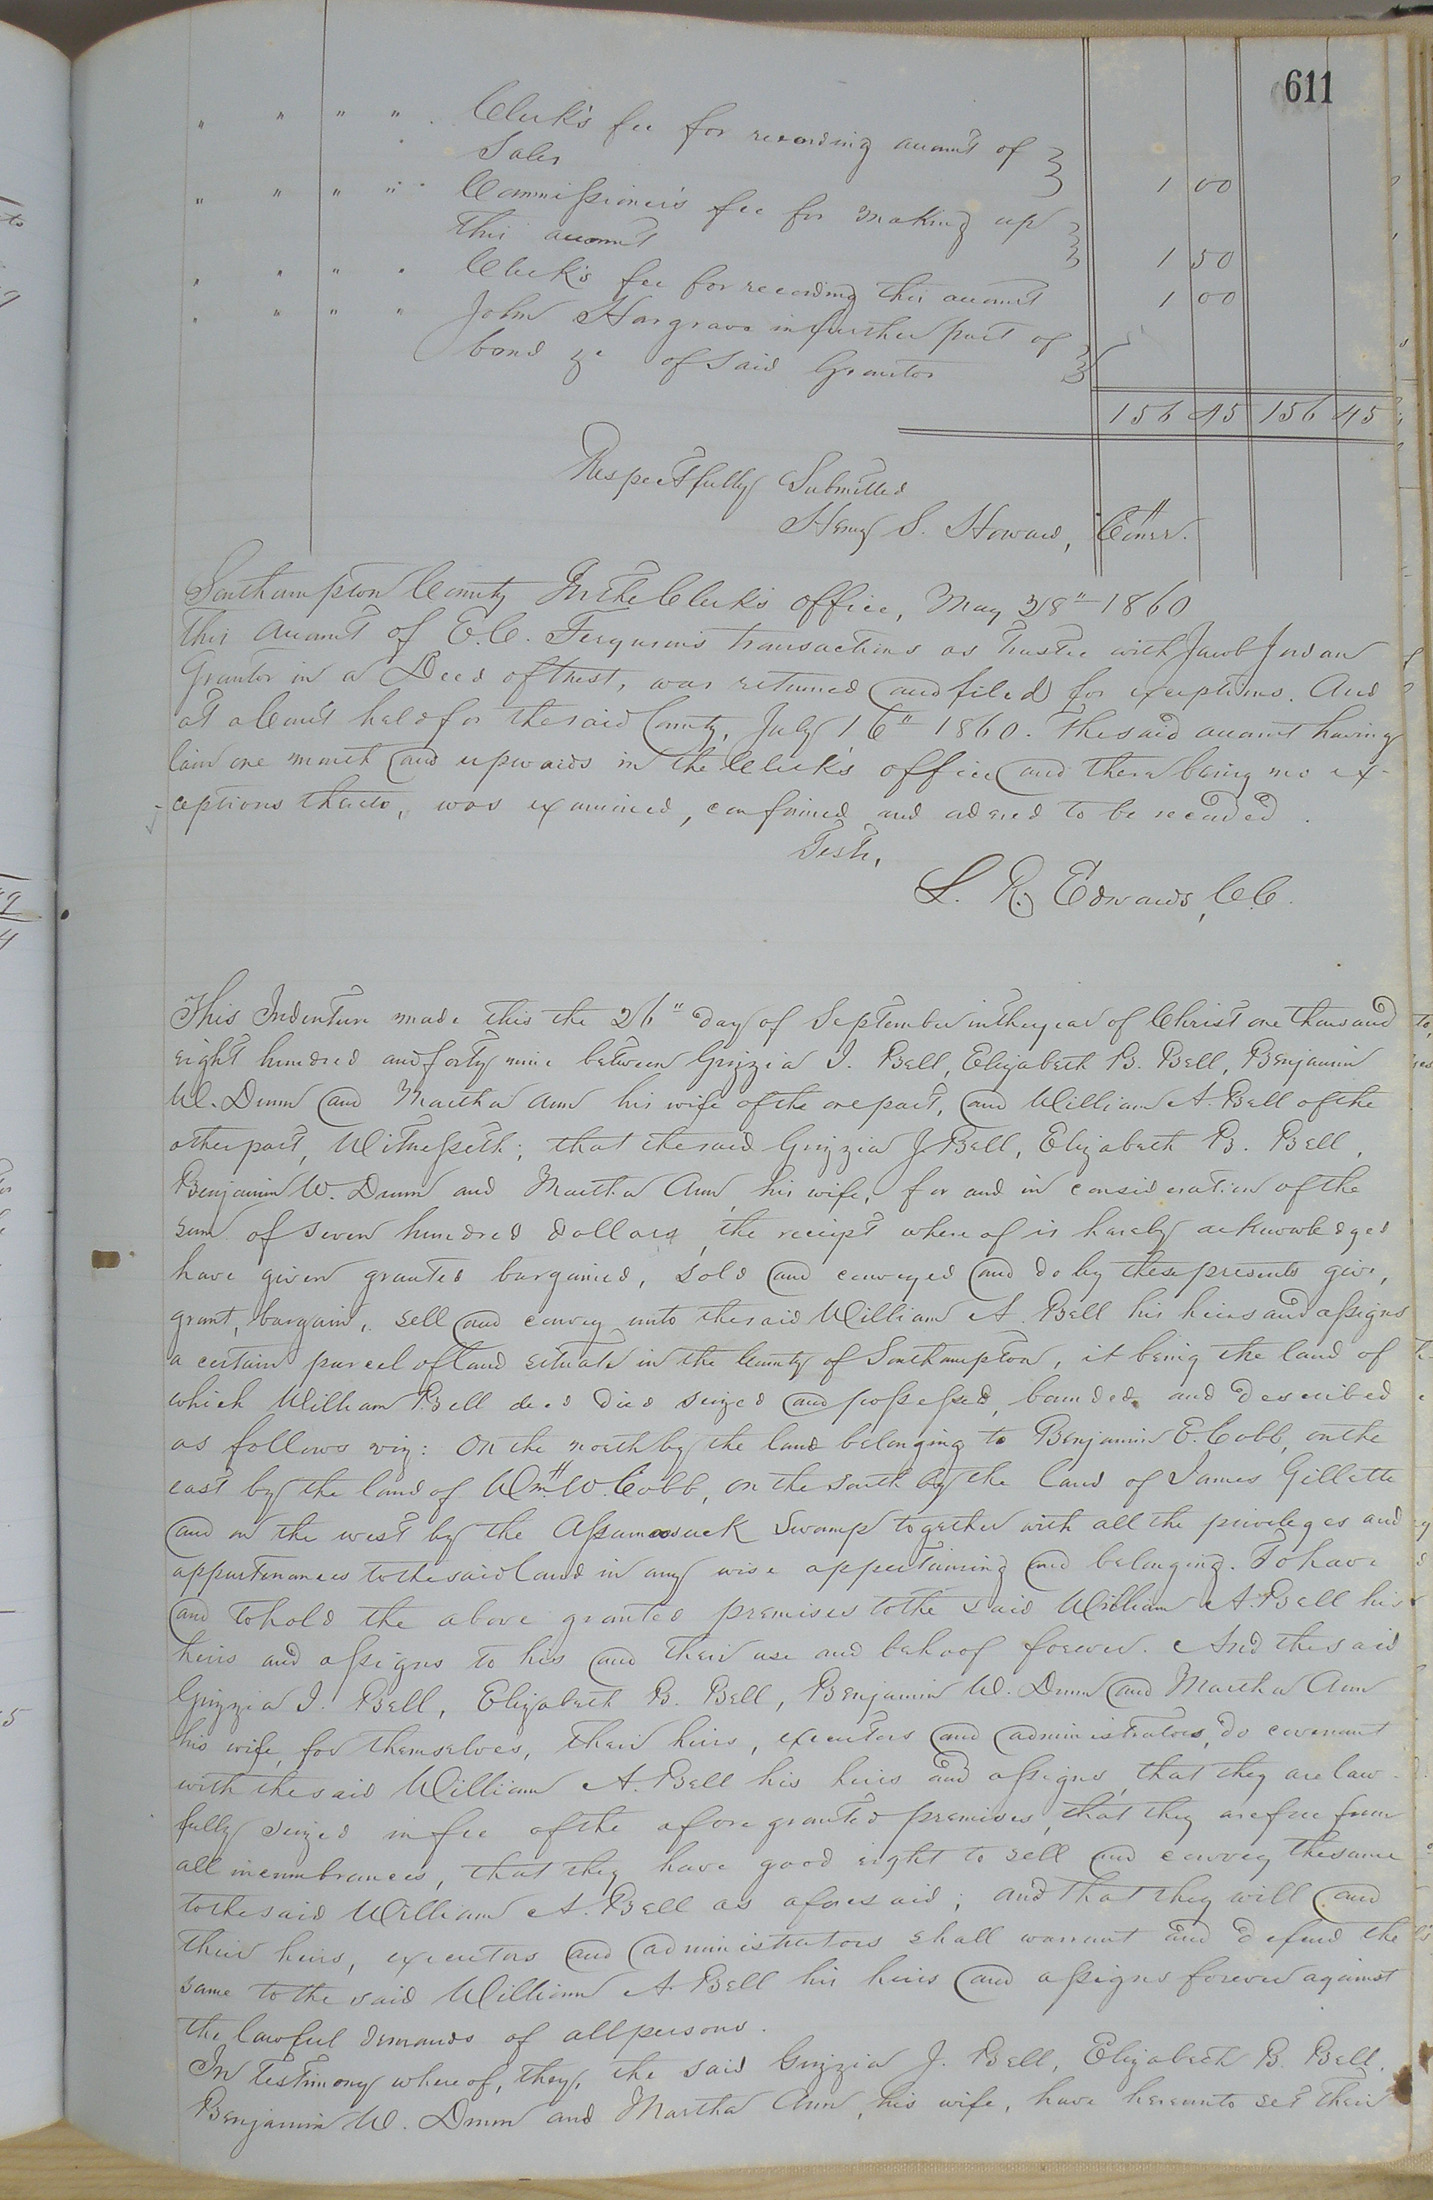 611
" " " " Clerk's fee for recording account of
Sales } 1 00
" " " " Commissioner's fee for making up
this account } 1 50
" " " " Clerk's fee for recording this account 1 00
" " " " John Hargrave in further part of
bond &c of said Grantor }
156 45 156 45
Respectfully Submitted
Henry S. Howard, Comr.
Southampton County In the Clerk's office, May 28" 1860
This Account of E. C. Ferguson's transactions as Trustee with Jacob Jordan
Grantor in a Deed of trust, was returned and filed for exceptions. And
at a Court held for the said County, July 16" 1860. The said account having
lain one month and upwards in the Clerk's office and there being no ex-
ceptions thereto, was examined, confirmed and ordered to be recorded.
Teste,
L. R. Edwards, C.C.
This Indenture made this the 26" day of September in the year of Christ one thousand
eight hundred and forty nine between Grizzia J. Bell, Elizabeth B. Bell, Benjamin
W. Dunn and Martha Ann his wife of the one part, and William A. Bell of the
other part, Witnesseth; that the said Grizzia J. Bell, Elizabeth B. Bell,
Benjamin W. Dunn and Martha Ann, his wife, for and in consideration of the
sum of seven hundred dollars, the receipt whereof is hereby acknowledged
have given granted bargained, sold and conveyed and do by these presents give,
grant, bargain, sell and convey unto the said William A. Bell his heirs and assigns
a certain parcel of land situate in the County of Southampton, it being the land of
which William Bell decd died seized and possessed, bounded and described
as follows viz: On the north by the land belonging to Benjamin E. Cobb, on the
east by the land of Wm. W. Cobb, on the south by the land of James Gillette
and on the west by the Assamoosack Swamp together with all the privileges and
appurtenances to the said land in any wise appertaining and belonging. To have
and to hold the above granted premises to the said William A. Bell his
heirs and assigns to his and their use and behoof forever. And the said
Grizzia J. Bell, Elizabeth B. Bell, Benjamin W. Dunn and Martha Ann
his wife, for themselves, their heirs, executors and administrators, do covenant
with the said William A. Bell his heirs and assigns, that they are law-
fully seized in fee of the afore granted premises, that they are free from
all incumbrances, that they have good right to sell and convey the same
to the said William A. Bell as aforesaid; and that they will and
their heirs, executors and administrators shall warrant and defend the
same to the said William A. Bell his heirs and assigns forever against
the lawful demands of all persons.
In testimony whereof, they, the said Grizzia J. Bell, Elizabeth B. Bell,
Benjamin W. Dunn and Martha Ann, his wife, have hereunto set their